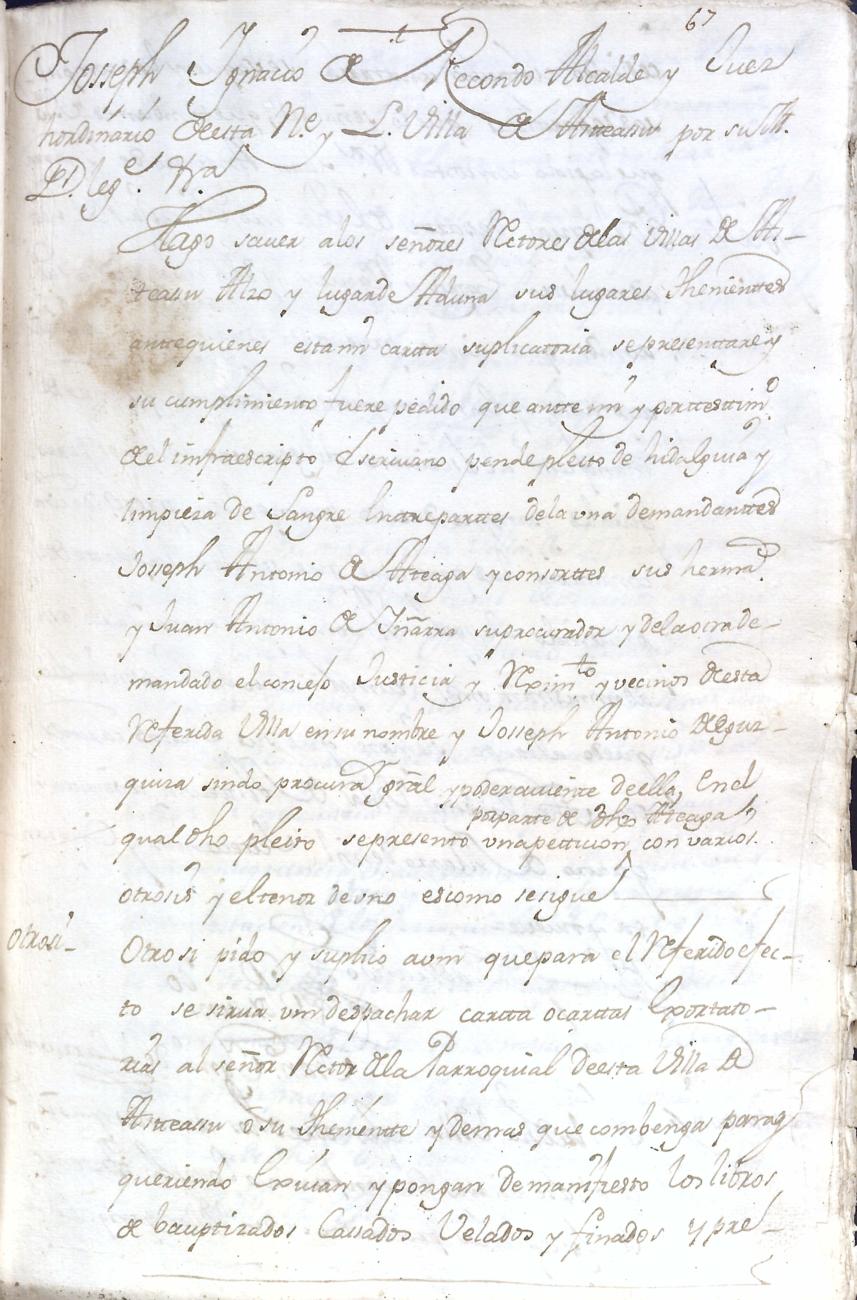 67
Josseph Ygnacio de Recondo Alcalde y Juez
hordinario deesta N.e y L. Villa de Asteasu por su M.
Dlege. &ra
Hago saver alos señores Rectores delas villas de As-
teasu Alzo y lugar de Aduna sus lugares thenienttes
antte quienes esta mi cartta suplicattoria se presenttare y
su cumplimiento fuere pedido que antte mi y porttesttim.o
de el infraescripto Escrivano pende pleito de hidalguia y
limpieza de Sangre Entrepartes dela una demandanttes
Josseph Antonio de Atteaga y consorttes sus herma.s
y Juan Antonio de Yñarra su procurador y dela otra de-
mandado el consejo Justicia y Reximto y vecinos deesta
Referida Villa en su nombre y Josseph Antonio de Egus-
quiza sindo procurar gñral y poderaviente deella, En el
por parte de dho Atteaga
qual dho pleito se presento vna petticion con varios
otrosis y el tenor de vno es como se sigue
Otrosi-
Otro si pido y suplico avm que para el Referido efec-
to se sirva vm despachar cartta o carttas Exortato-
rias al señor Rector dela Parroquial deesta Villa de
Asteasu o su thenientte y demas que combenga para q.e
queriendo Exivan y pongan de manifiesto los libros
de bauptizados Cassados Velados y finados y pre-